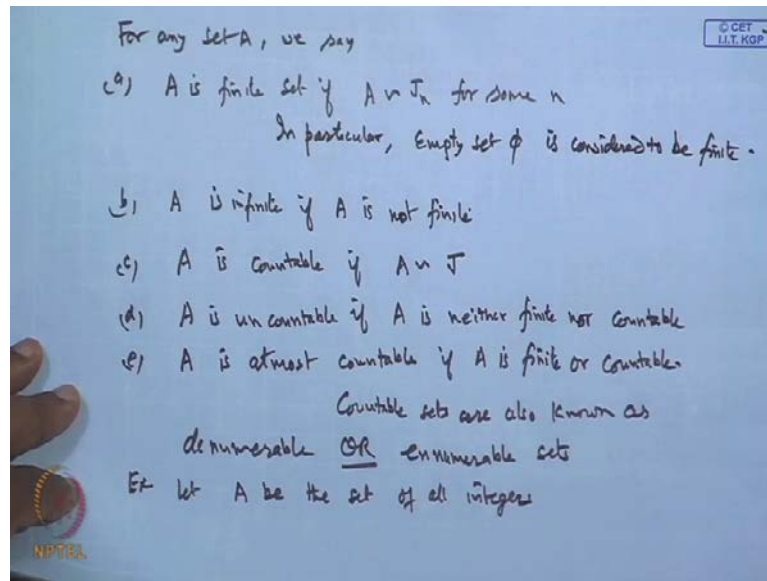 For any set A, we say
© CET
I.I.T. KGP
(a) A is finite set if A ~ Jn for some n
In particular, Empty set φ is considered to be finite.
(b) A is infinite if A is not finite
(c) A is countable if A ~ J
(d) A is uncountable if A is neither finite nor countable
(e) A is atmost countable if A is finite or countable.
Countable sets are also known as
denumerable OR ennumerable sets
Ex let A be the set of all integers
NPTEL